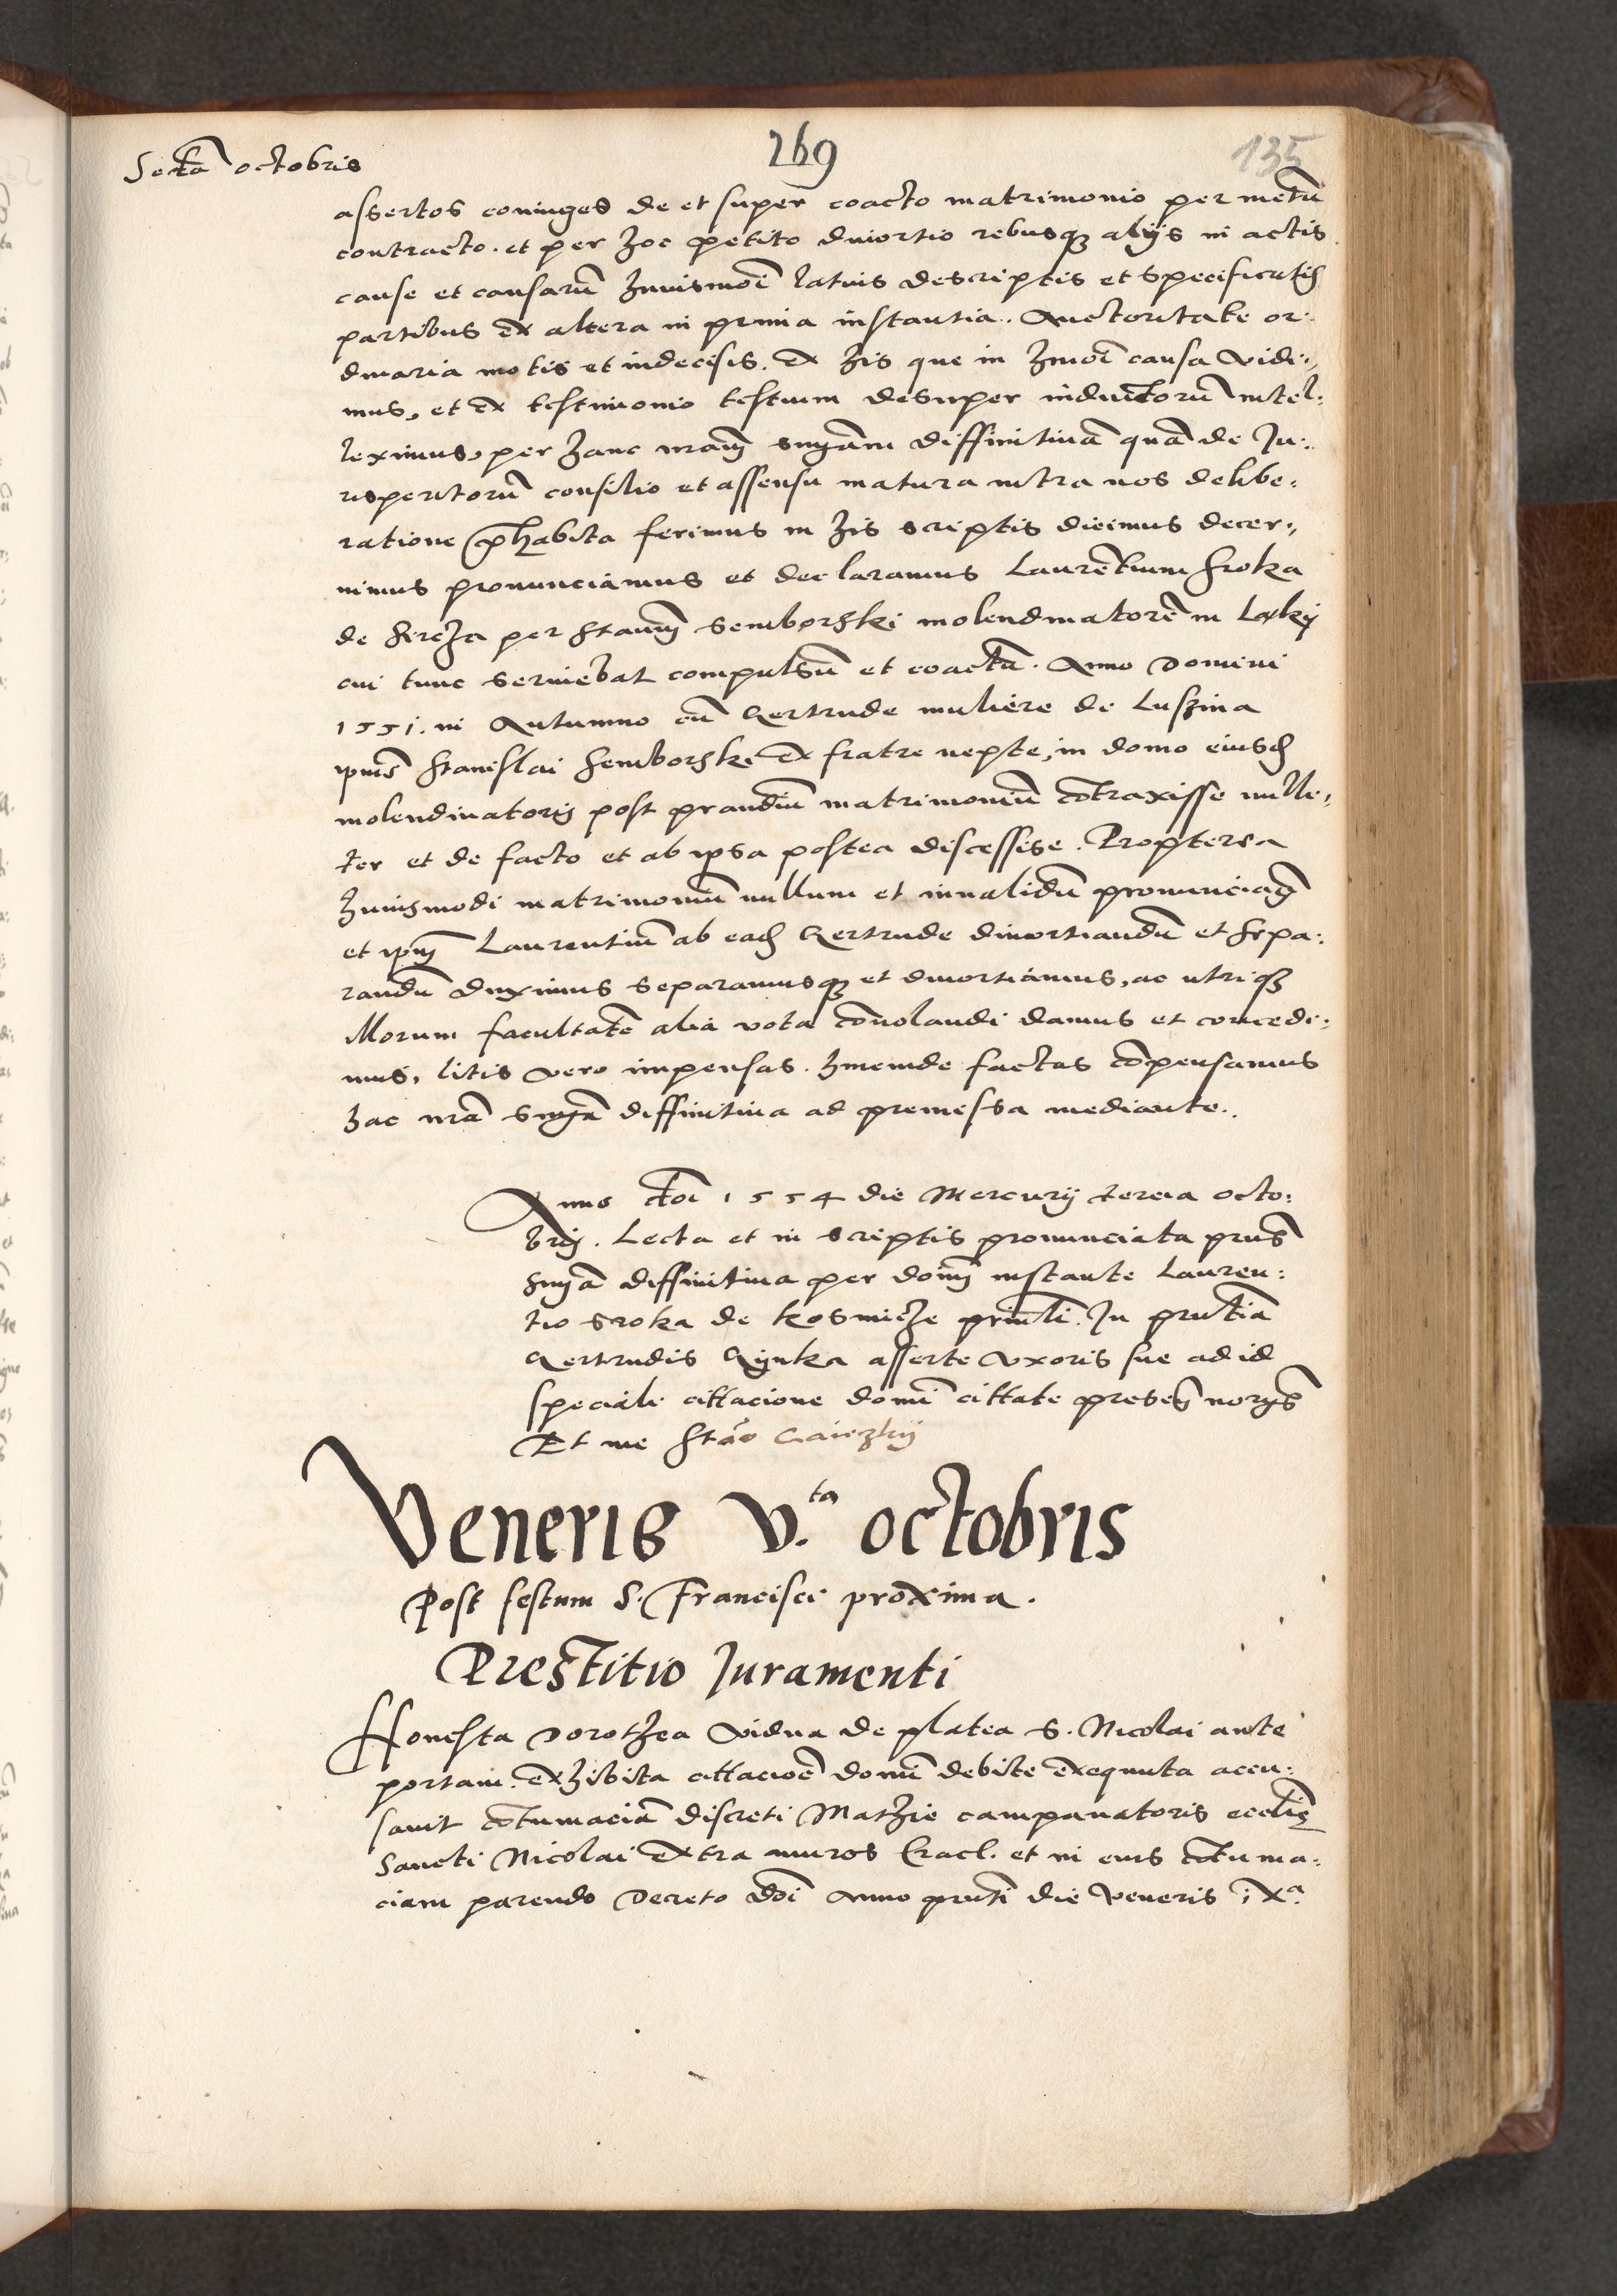 269
135
Sexta octobris
assertos coniuges de et super coacto matrimonio per metū
contracto. et per hoc petito diuortio rebusqꝫ alijs in actis
cause et causarū huiusmoi latius descriptis et specificatis
partibus ex altera in prima instantia. Auctoritate or:
dinaria motis et indecisis. Ex his que in hmoi causa vidi:
mus, et ex testimonio testium desuper inductorū intel:
leximus, per hanc nram snīam diffinitiuā quā de Ju:
risperitorū consilio et assensu matura intra nos delibe:
ratione p̄habita ferimus in his scriptis dicimus decer:
nimus pronunciamus et declaramus Laurētium Sroka
de per Stanm Semborski molendinatorē in
cui tunc seruiebat compulsū et coactū. Anno Domini
1551. in Autumno cū Gertrude muliere de Luszina
ipius Stanislai Semborski ex fratre nepte, in domo eiusd
molendinatoris post prandiū matrimoniū cōtraxisse nulli:
ter et de facto et ab ipsa postea discessisse. Propterea
huiusmodi matrimoniū nullum et inualidū pronunciam̄
et ipm Laurentiū ab ead Gertrude diuortiandū et sepa:
randū duximus separamusqꝫ et diuortiamus, ac utriqꝫ
illorum facultatē alia vota cōuolandi damus et concedi:
mus, litis vero impensas hincinde factas cōpensamus
hac nrā snīa diffinitiua ad premissa mediante.
Anno doī 1554 die Mercurij tercia octo:
bris. Lecta et in scriptis pronunciata prns
snīa diffinitiua per dnm instante Lauren:
tio Sroka de Kosmicze prinli. In prntia
Gertrudis asserte vxoris sue ad id
speciali cittacione domi cittate presen norijs
Et me Stao
Veneris v.ta octobris
Post festum S. Francisci proxima.
Prestitio Juramenti
Honesta Dorothea vidua de platea S. Nicolai ante
portam. exhibita cittacioē domi debite exequuta accu:
sauit cōtumaciā discreti Mathie campanatoris ecclie
Sancti Nicolai extra muros Cracl. et in eius cōtuma:
ciam parendo Decreto doi Anno prnti die Veneris